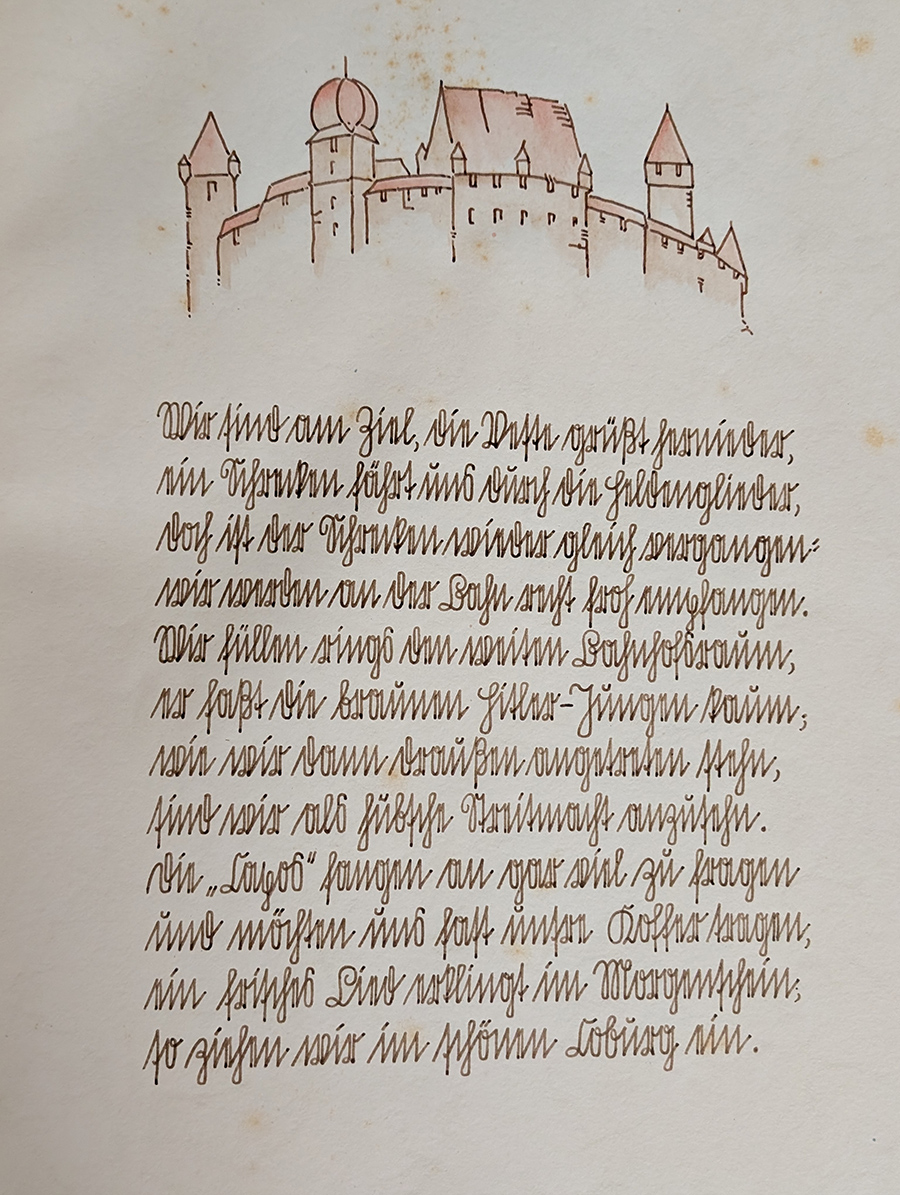 Wir sind am Ziel, die Veste grüßt hernieder,
ein Schrecken fährt uns durch die Heldenglieder,
doch ist der Schrecken wieder gleich vergangen=
wir werden an der Bahn recht froh empfangen.
Wir füllen rings den weiten Bahnhofsraum,
er faßt die braunen Hitler-Jungen kaum;
wie wir dann draußen angetreten stehn,
sind wir als hübsche Streitmacht anzusehn.
Die „Capos“ fangen an gar viel zu fragen
und möchten uns fast unsre Koffer tragen;
ein frisches Lied erklingt im Morgenschein;
so ziehen wir im schönen Coburg ein.